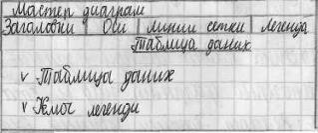 Мастер диаграм
Заголовки Оси линии сетки легенда
Таблица даних
v Таблица даних
v Ключ легенди